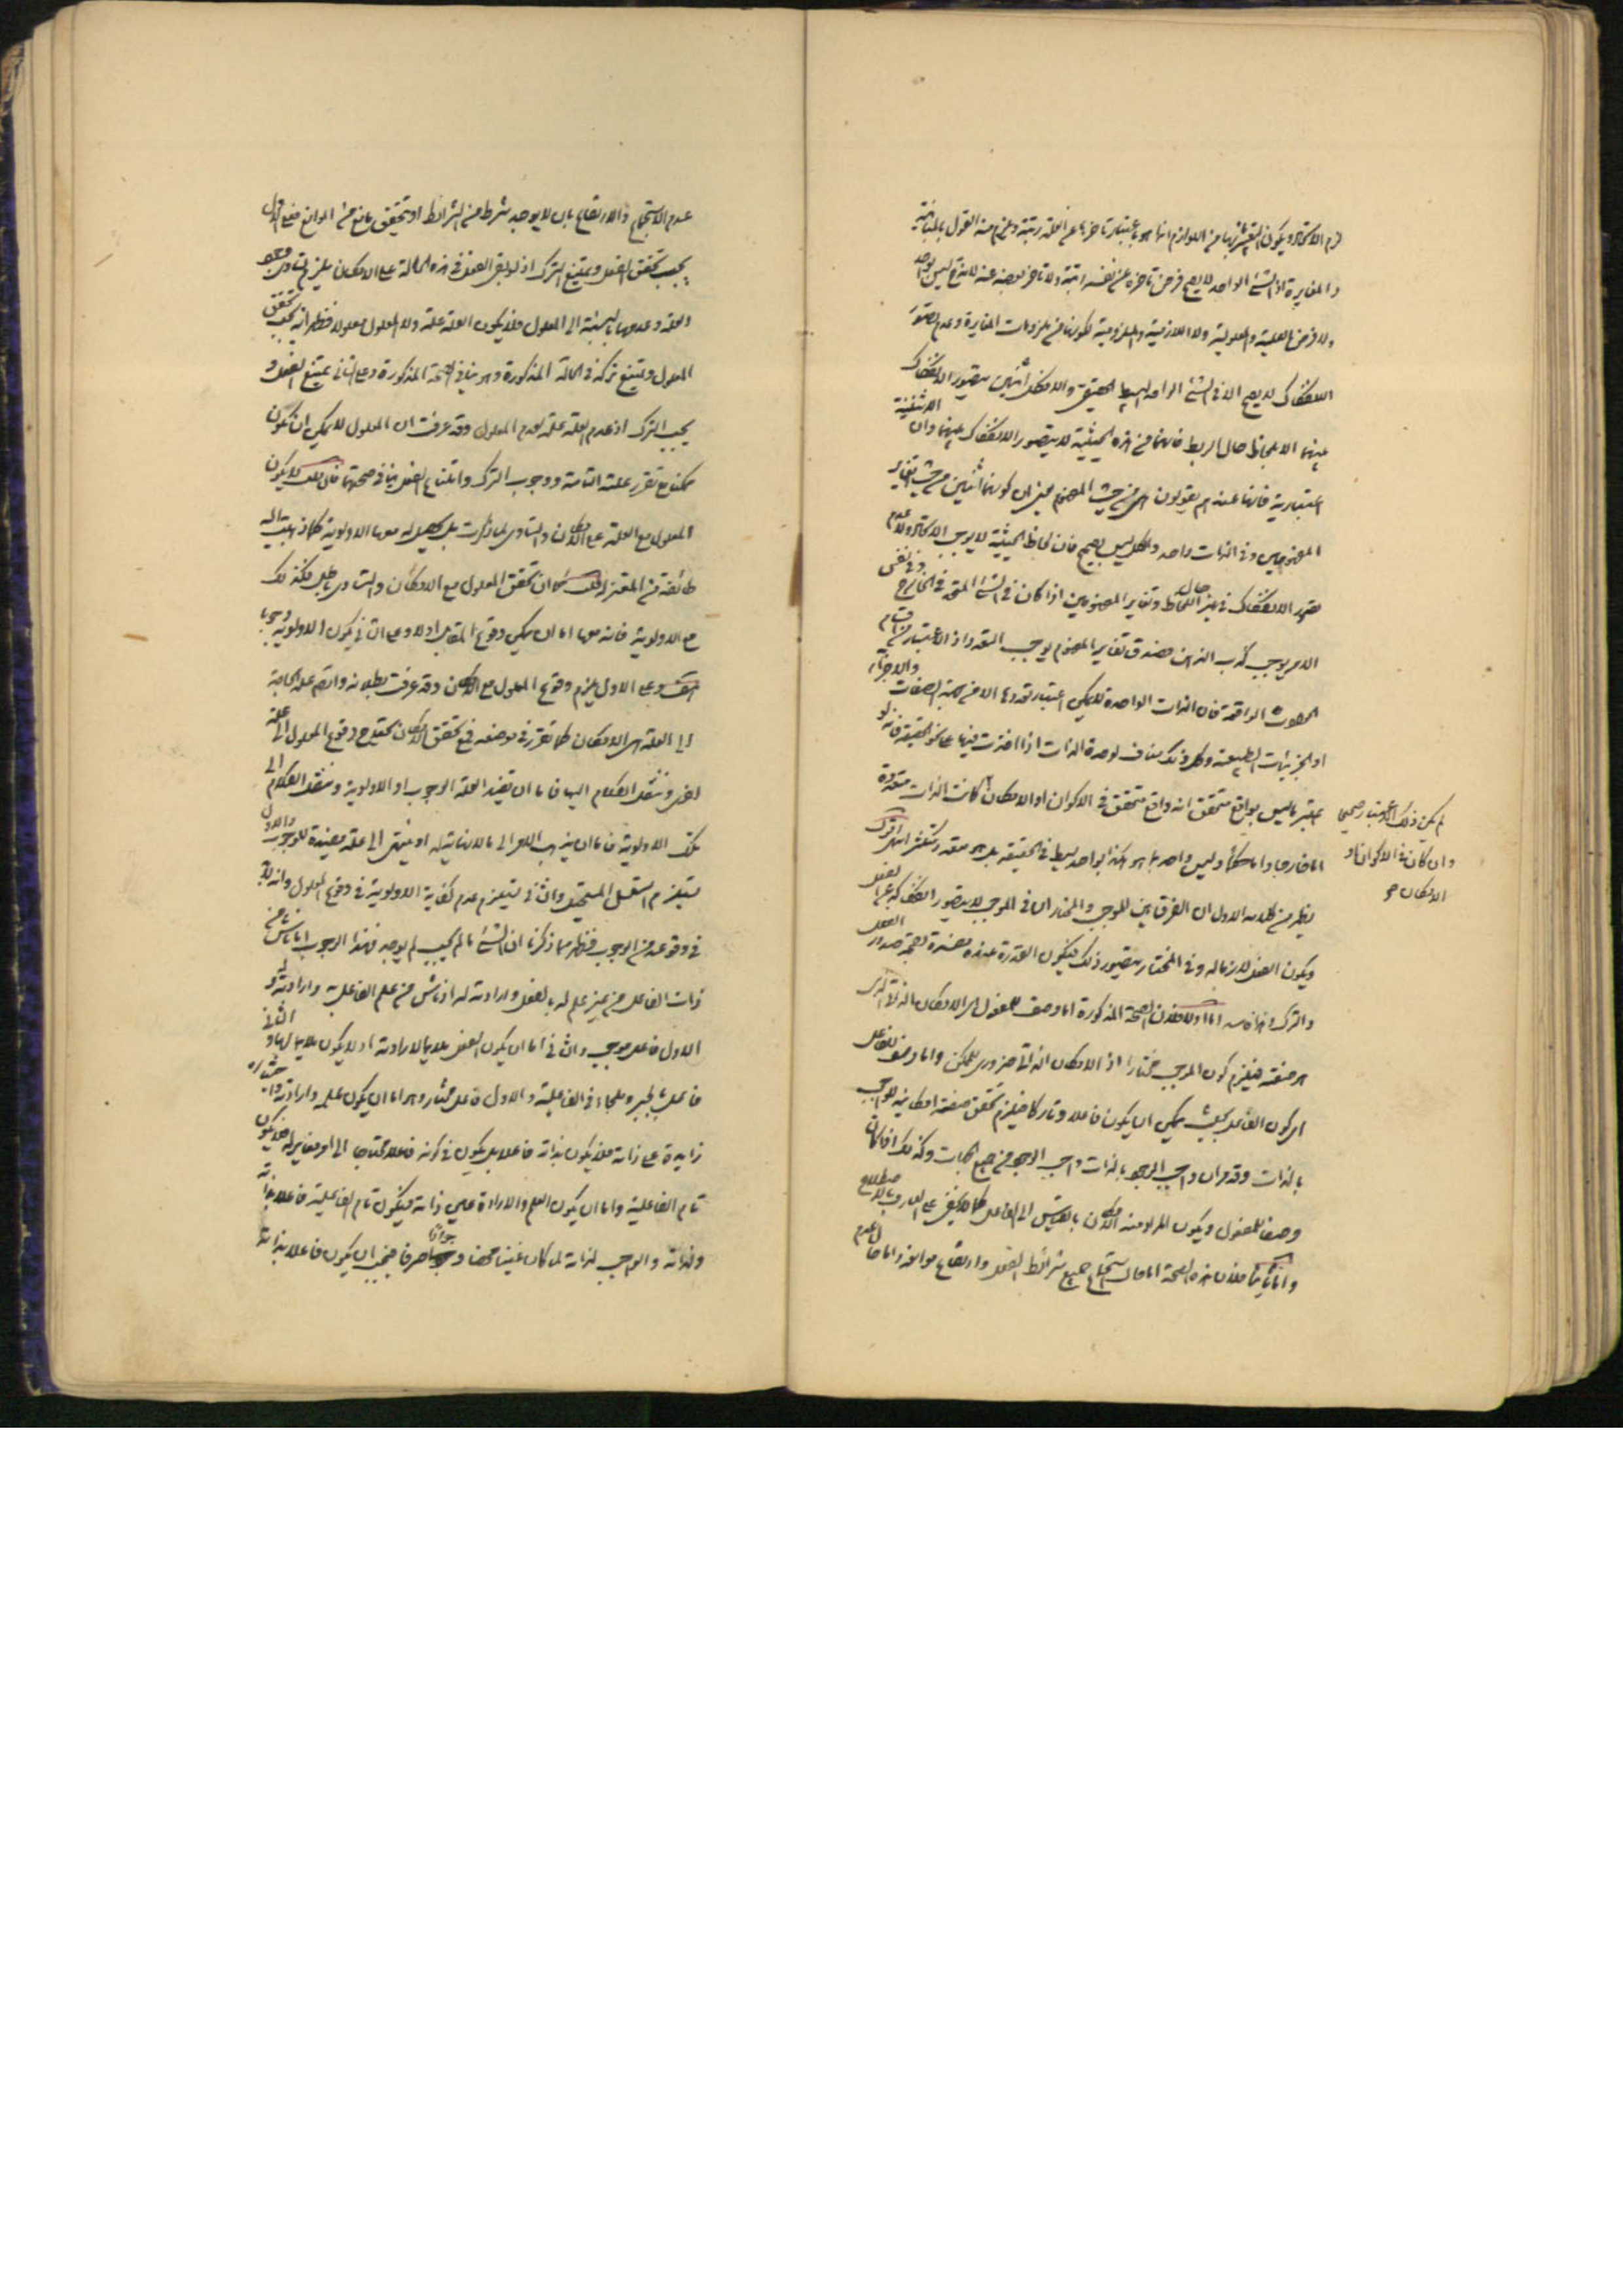 لزم الاتحاد ويكون التعبير بانها من اللوازم انما هو باعتبار تاخرها عن العلة رتبة ولزم منه القول بالمباينة
والمغايرة اذ الشئ الواحد لا يصح فرض تاخره عن نفسه رتبة ولا تاخر بعضه عنه لانه ليس
ولا فرض العلية والمعلولية ولا اللازمية والملزومية لكونها من ملزومات المغايرة وعدم تصور
الانفكاك لا يصح الا في الشئ الواحد البسيط الحقيقي والا فكل اثنين يتصور الانفكاك
بينهما الا بلحاظ حال الربط فانهما من هذه الحيثية لا يتصور الانفكاك بينهما وان الاثنينية
اعتبارية فانها عندهم يقولون من حيث المفهوم يعني ان كونهما اثنين من حيث تغاير
المفهومين وفي الذات واحد والكل ليس بصحيح فان لحاظ الحيثية لا يوجب الاتحاد ولا عدم
تصور الانفكاك في غير حال اللحاظ وتغاير المفهومين اذا كان في الشئ المتحد في الخارج وفي نفس
الامر يوجب كذب الذهن فصدق تغاير المفهوم يوجب التعدد اذ الاعتبار من اقسام
الحدوث الواقعة فان الذات الواحدة لا يمكن اعتبار تعددها الا من جهة الصفات والاجزاء
او الجزئيات الطبيعية وكل ذلك مناف لوحدة الذات اذا اخذت فيها على نحو الحقيقة فانه لو
لم يكن ذلك الاعتبار صحيحا
وان كان في الاكوان او
الامكان صح
اعتبر ما ليس بواقع متحقق انه واقع متحقق في الاكوان او الامكان كانت الذات متعددة
اما خارجا واما امكانا وليس واحد بما هو هكذا بواحد بسيط في الحقيقة بل هو متعدد متكثر انتهى اقول
يظهر من كلامه الاول ان الفرق بين الموجب والمختار ان في الموجب لا يتصور انفكاكه عن الفعل
ويكون الفعل لازما له وفي المختار يتصور ذلك فيكون القدرة عنده مفسرة بصحة صدور الفعل
والترك وهذا فاسد اما اولا فلان الصحة المذكورة اما وصف للمفعول اي الامكان الذاتي الذي
هو صفته فيلزم كون الموجب مختارا اذ الامكان الذاتي ضروري للممكن واما وصف للفاعل
اي كون الفاعل بحيث يمكن ان يكون فاعلا وتاركا فيلزم تحقق صفة امكانية للواجب
بالذات وقد مر ان واجب الوجود بالذات واجب الوجود من جميع الجهات وكذلك اذا كان
وصفا للمفعول ويكون المراد منه الامكان بالقياس الى الفاعل كما لا يخفى على العارف بالاصطلاح
واما ثانيا فلان هذه الصحة اما حال استجماع جميع شرائط الفعل وارتفاع موانعه واما حال عدم
عدم الاستجماع والارتفاع بان لا يوجد شرط من الشرائط او تحقق مانع من الموانع فعلى الاول
يجب تحقق الفعل ويمتنع الترك اذ لو بقى الفعل في هذه الحالة على الامكان يلزم تساوي وجود
العلة وعدمها بالنسبة الى المعلول فلا يكون العلة علة ولا المعلول معلولا فظهر انه يجب تحقق
المعلول ويمتنع تركه في الحالة المذكورة وهو ينافي الصحة المذكورة وعلى الثاني يمتنع الفعل و
يجب الترك اذ عدم العلة علة لعدم المعلول وقد عرفت ان المعلول لا يمكن ان يكون
ممكنا مع تقرر علته التامة ووجوب الترك وامتناع الفعل ينافي صحتهما فان قلت لا يكون
المعلول مع العلة على الامكان والتساوي لما ذكرت بل يحصل له معها الاولوية كما ذهبت اليه
طائفة من المعتزلة قلت كما ان تحقق المعلول مع الامكان والتساوي باطل فكذلك
مع الاولوية فانه معها اما ان يمكن وقوع المقابل او لا وعلى الثاني يكون الاولوية وجوبا
هف وعلى الاول يلزم وقوع المعلول مع الامكان وقد عرفت بطلانه وايضا علة الحاجة
الى العلة هو الامكان كما تقرر في موضعه فمع تحقق الامكان يحتاج وقوع المعلول الى علة
اخرى وننقل الكلام اليها فاما ان يفيد العلة الوجوب او الاولوية وننقل الكلام الى
تلك الاولوية فاما ان يذهب الامر الى ما لا نهاية له او ينتهي الى علة مفيدة للوجوب والاول
يستلزم التسلسل المستحيل والثاني يستلزم عدم كفاية الاولوية في وقوع المعلول وانه لا بد
في وقوعه من الوجوب فظهر مما ذكرنا ان الشئ ما لم يجب لم يوجد فهذا الوجوب اما ناش من
ذات الفاعل من غير علم له بالفعل وارادته له او ناش من علم الفاعل به وارادته له و
الاول فاعل موجب والثاني اما ان يكون الفعل ملايما لارادته او لا يكون ملايما لها والثاني
فاعل بالجبر وملجاء في الفاعلية والاول فاعل مختار وهو اما ان يكون علمه وارادته واختياره
زايدة على ذاته فلا يكون بذاته فاعلا بل يكون في كونه فاعلا محتاجا الى امر مغاير له فلا يكون
تام الفاعلية واما ان يكون العلم والارادة عين ذاته فيكون تام الفاعلية فاعلا بذاته
ولذاته والواجب لذاته لما كان غنيا محضا وجوادا صرفا فيجب ان يكون فاعلا بذاته